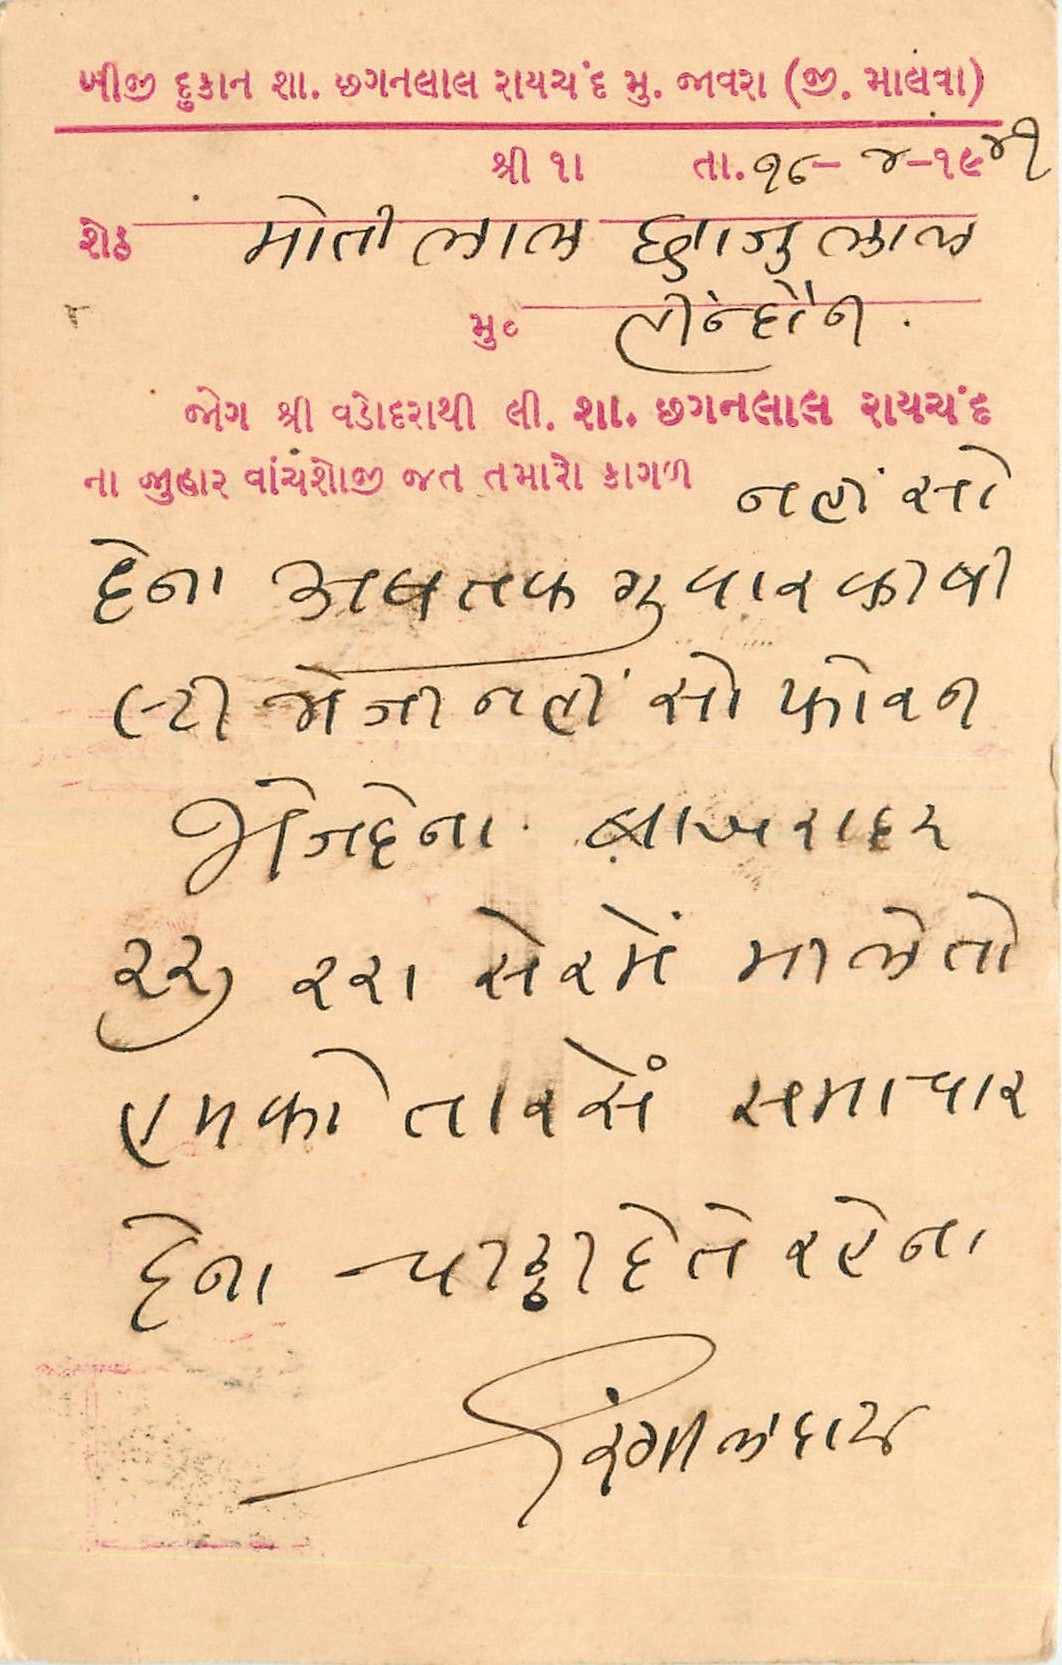 બીજી દુકાન શા. છગનલાલ રાયચંદ મુ. જાવરા (જી. માલવા)
શ્રી ૧ા તા. ૧૮-૪-૧૯૪૧
શેઠ મોતીલાલ છાજુલાલ
મુ૦ હીન્દોન.
જોગ શ્રી વડોદરાથી લી. શા. છગનલાલ રાયચંદ
ના જુહાર વાંચશોજી જત તમારો કાગળ નહીં સો
દેના અબતક ગુવાર કી બી
લ્ટી ભેજી નહીં સો ફોરન
ભેજ દેના. દર
૨૨ા સેરમેં મીલે તો
હમકો તારસેં સમાચાર
દેના ચીઠ્ઠી દેતે રહેના